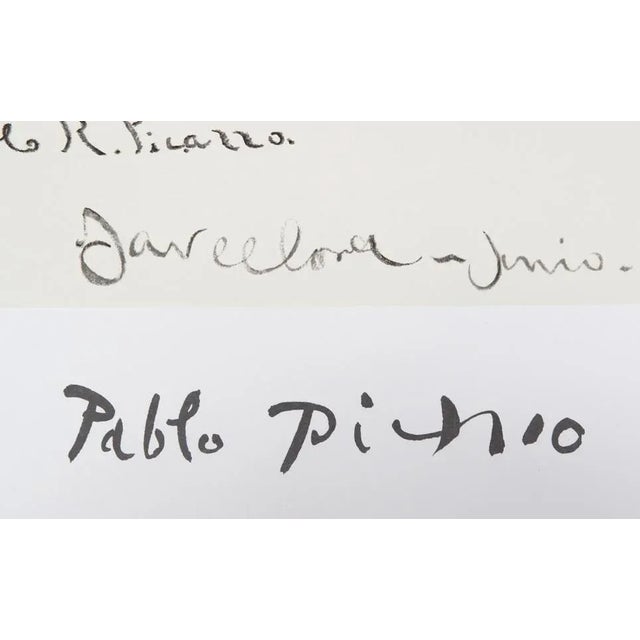 R. Picazzo.
Barcelona - Junio.
Pablo Picasso